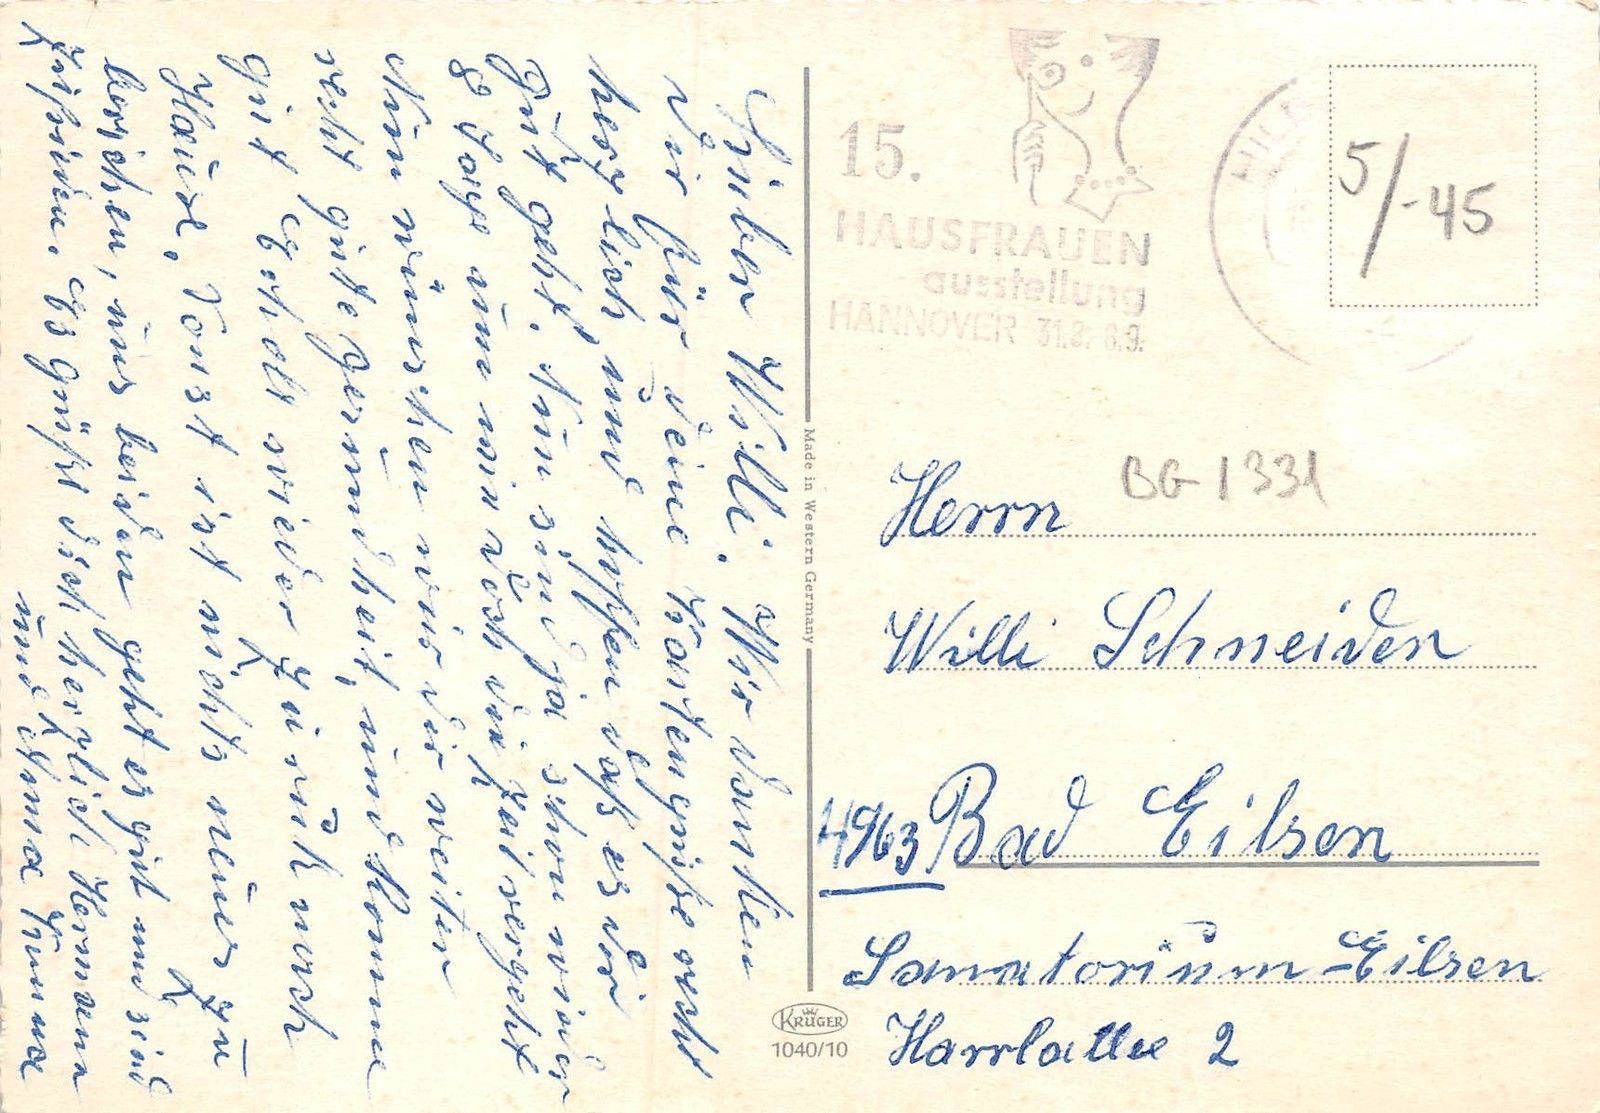 Lieber Willi. Wir danken
dir für deine Kartengrüße recht
herzlich, und hoffen daß es dir
gut geht. Nun sind ja schon wieder
8 Tage um wie doch die Zeit vergeht
Nun wünschen wir dir weiter
recht gute Gesundheit, und komme
gut Erholt wieder zurück nach
Hause. Sonst ist nichts neues zu
berichten, uns beiden geht es gut und sind
zufrieden. Es grüßt dich herzlich Hermann
und Anna
15.
HAUSFRAUEN
ausstellung
HANNOVER 31.8. 6.9.
5/-45
Made in Western Germany
BG 1331
Herrn
Willi Schneider
4963 Bad Eilsen
Sanatorium-Eilsen
Harrlallee 2
KRÜGER
1040/10